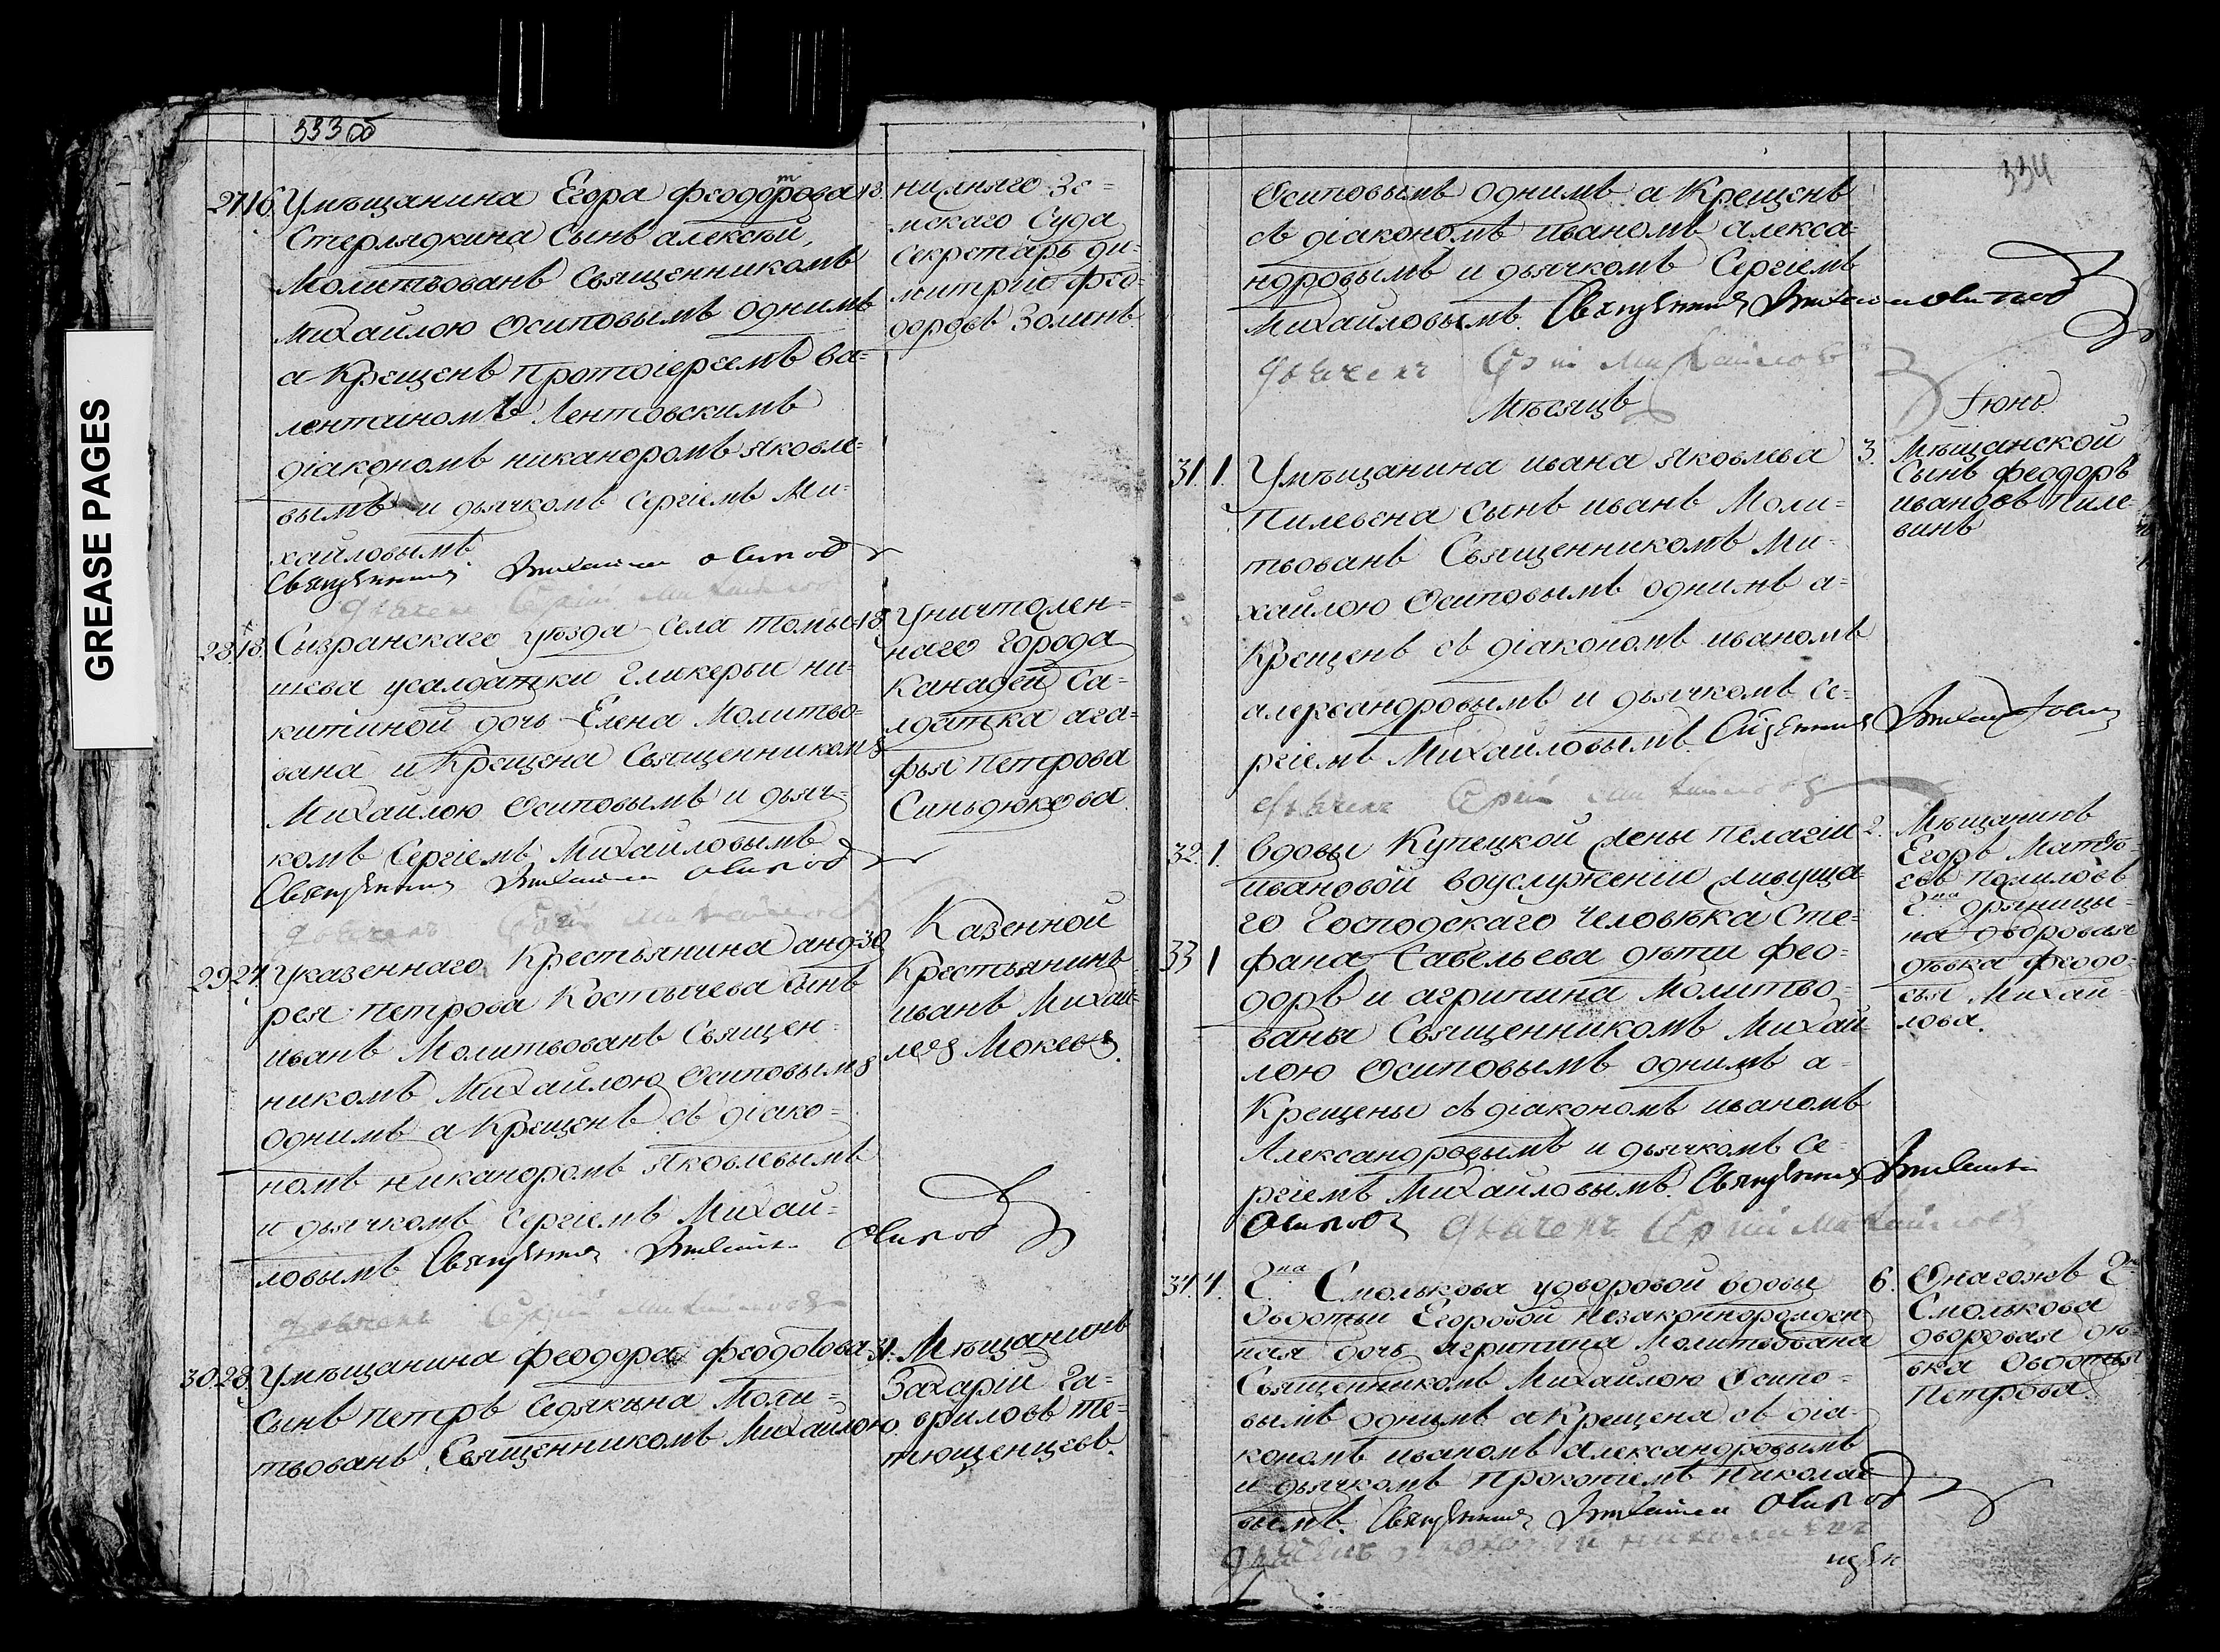 333об
27. 16. Умѣщанина Егора Феодорова
Стерлядкина Сынъ алексѣй,
Молитвованъ Священникомъ
Михайлою Осиповымъ однимъ
а Крещенъ Протоіереемъ Ва=
лентиномъ Лентовскимъ
діакономъ никаноромъ яковле=
вымъ и дьячкомъ Сергіемъ Ми=
хайловымъ
Священникъ Михаила осиповъ
дьячекъ Сергій михайловъ
18. нижняго Зе=
мскаго Суда
Секретарь ди=
митрій фео=
доровъ Золинъ.
28. 18. Сызранскаго уѣзда Села томы=
шева усалдатки Гликерьи ни=
китиной дочь Елена Молитво=
вана и Крещена Священникомъ
Михайлою Осиповымъ и дьяч=
комъ Сергіемъ Михайловымъ
Священникъ Михаила осиповъ
дьячекъ Сергій михайловъ
18. Уничтожен=
наго города
Канадей Са=
лдатка ага=
фья петрова
Синьдюкова.
29. 27. Указеннаго Крестьянина анд=
рея петрова Костычева Сынъ
иванъ Молитвованъ Священ=
никомъ Михайлою Осиповымъ
однимъ а Крещенъ съ діако=
номъ никаноромъ яковлевымъ
и дьячкомъ Сергіемъ Михай=
ловымъ Священникъ Михаила осиповъ
дьячекъ Сергій михайловъ
30 Казенной
Крестьянинъ
иванъ Михай=
левъ Мокевъ.
30. 28. Умѣщанина феодора феодотова
Сынъ петръ Седякина Моли=
твованъ Священникомъ Михайлою
31. Мѣщанинъ
Захарій Га=
вриловъ те=
тющенцевъ.
334
Осиповымъ однимъ а Крещенъ
съ діакономъ иваномъ алекса=
ндровымъ и дьячкомъ Сергіемъ
Михайловымъ. Священникъ Михаила осиповъ
дьячекъ Сергій Михайловъ
Мѣсяцъ Іюнь
31. 1. Умѣщанина ивана яковлева
Пилевена Сынъ иванъ Моли=
твованъ Священникомъ Ми=
хайлою Осиповымъ однимъ а=
Крещенъ съ діакономъ иваномъ
александровымъ и дьячкомъ Се=
ргіемъ Михайловымъ. Священникъ Михаила
дьячекъ Сергій михайловъ
3. Мѣщанской
Сынъ феодоръ
ивановъ пиле=
винъ
32. 1. вдовы Купецкой жены пелагіи
ивановой воуслуженіи живуща=
го Господскаго человѣка Сте=
33 1 фана Савельева дѣти фео=
доръ и агрипина Молитво=
ваны Священникомъ Михай
лою Осиповымъ однимъ а=
Крещены съ діакономъ иваномъ
Александровымъ и дьячкомъ Се=
ргіемъ Михайловымъ. Священникъ Михаила
Осиповъ дьячекъ Сергій михайловъ
2. Мѣщанинъ
Егоръ Матвѣ=
евъ помиловъ
Г.на
на дворовая
дѣвка феодо=
сья Михай=
лова.
34. 4. Г.на Смолькова удворовой вдовы
Овдотьи Егоровой незакрнорожден
ная дочь агрипина Молитвована
Священникомъ Михайлою Осипо=
вымъ однимъ а Крещена съ діа=
кономъ иваномъ Александровымъ
и дьячкомъ прокопіемъ николае
вымъ. Священникъ Михаила Осиповъ
дьячекъ прокопій николаевъ
6. Онагожъ Г.на
Смолькова
дворовая дѣ=
вка Овдотья
Петрова.
GREASE PAGES